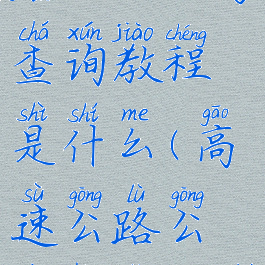 chá xún jiào chéng
查询教程
shì shí me gāo
是什么(高
sù gōng lù gōng
速公路公